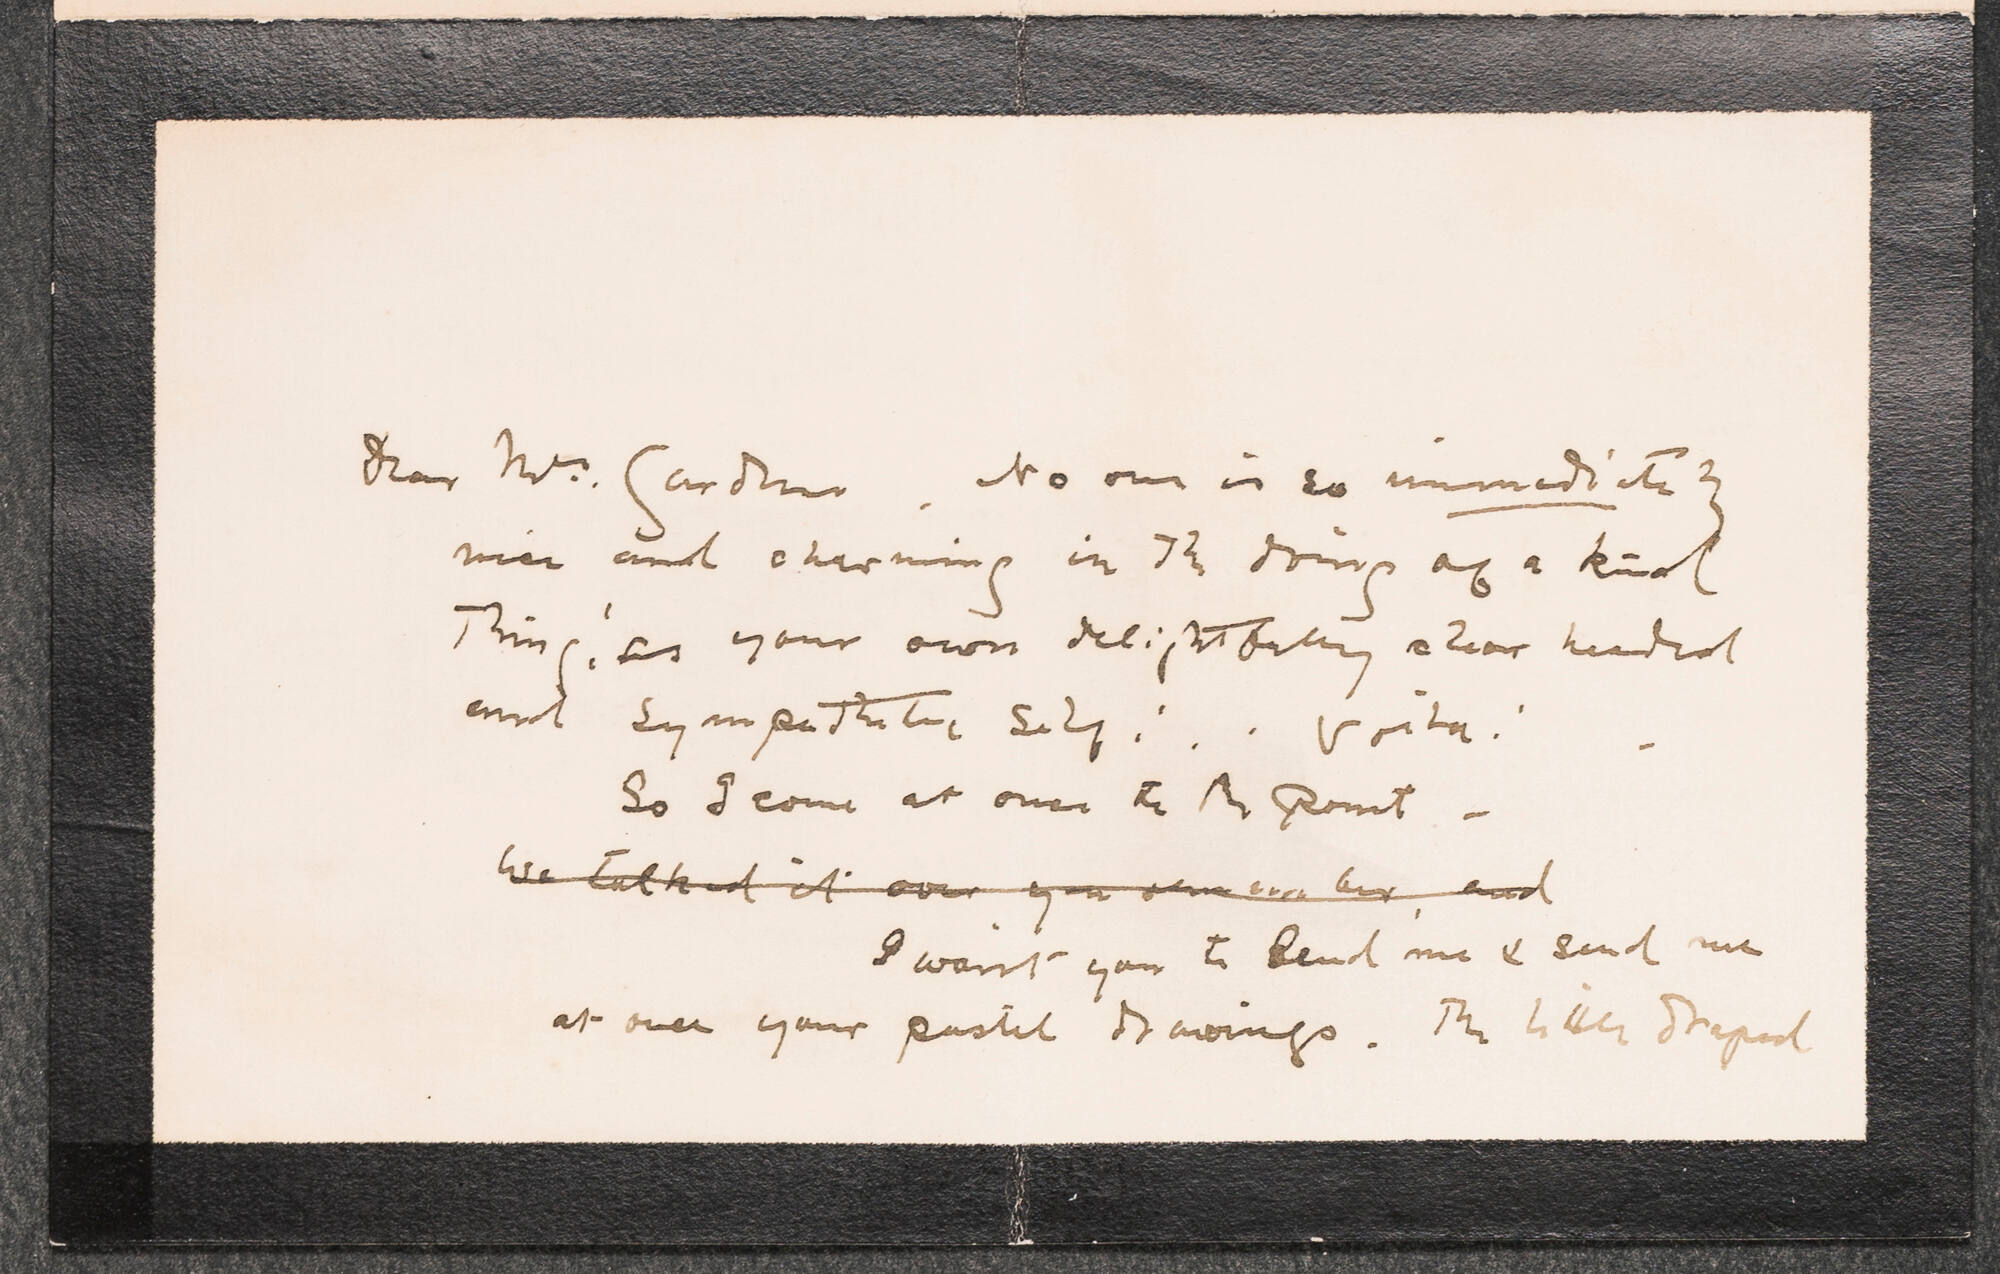 Dear Mrs. Gardner. No one is so immediately
nice and charming in the doing of a kind
thing! as your own delightfully clear headed
and sympathetic self! . . Voila! -
So I come at once to the point -
We talked it over you remember and
I want you to lend me & send me
at once your pastel drawings. The little draped